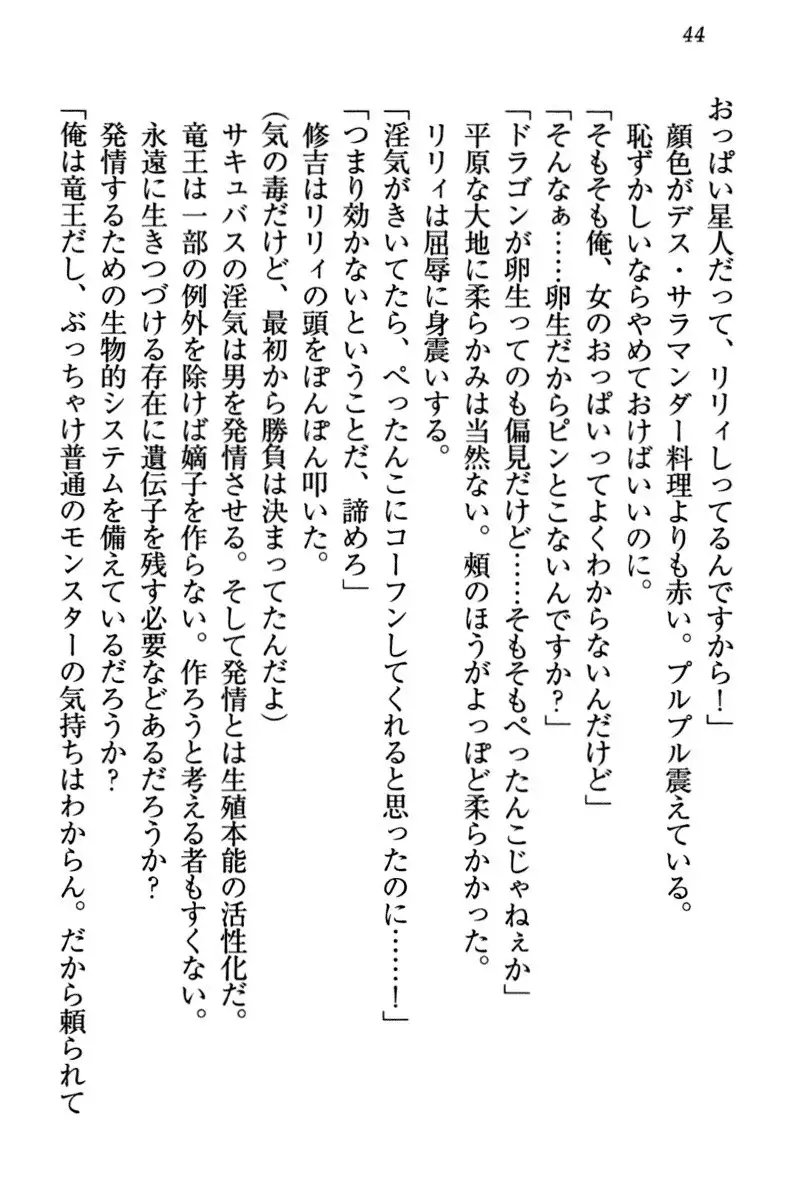 44
おっぱい星人だって、リリィしってるんですから！」
顔色がデス・サラマンダー料理よりも赤い。プルプル震えている。
恥ずかしいならやめておけばいいのに。
「そもそも俺、女のおっぱいってよくわからないんだけど」
「そんなぁ……卵生だからピンとこないんですか？」
「ドラゴンが卵生ってのも偏見だけど……そもそもぺったんこじゃねぇか」
平原な大地に柔らかみは当然ない。頰のほうがよっぽど柔らかかった。
リリィは屈辱に身震いする。
「淫気がきいてたら、ぺったんこにコーフンしてくれると思ったのに……！」
「つまり効かないということだ、諦めろ」
修吉はリリィの頭をぽんぽん叩いた。
（気の毒だけど、最初から勝負は決まってたんだよ）
サキュバスの淫気は男を発情させる。そして発情とは生殖本能の活性化だ。
竜王は一部の例外を除けば嫡子を作らない。作ろうと考える者もすくない。
永遠に生きつづける存在に遺伝子を残す必要などあるだろうか？
発情するための生物的システムを備えているだろうか？
「俺は竜王だし、ぶっちゃけ普通のモンスターの気持ちはわからん。だから頼られて